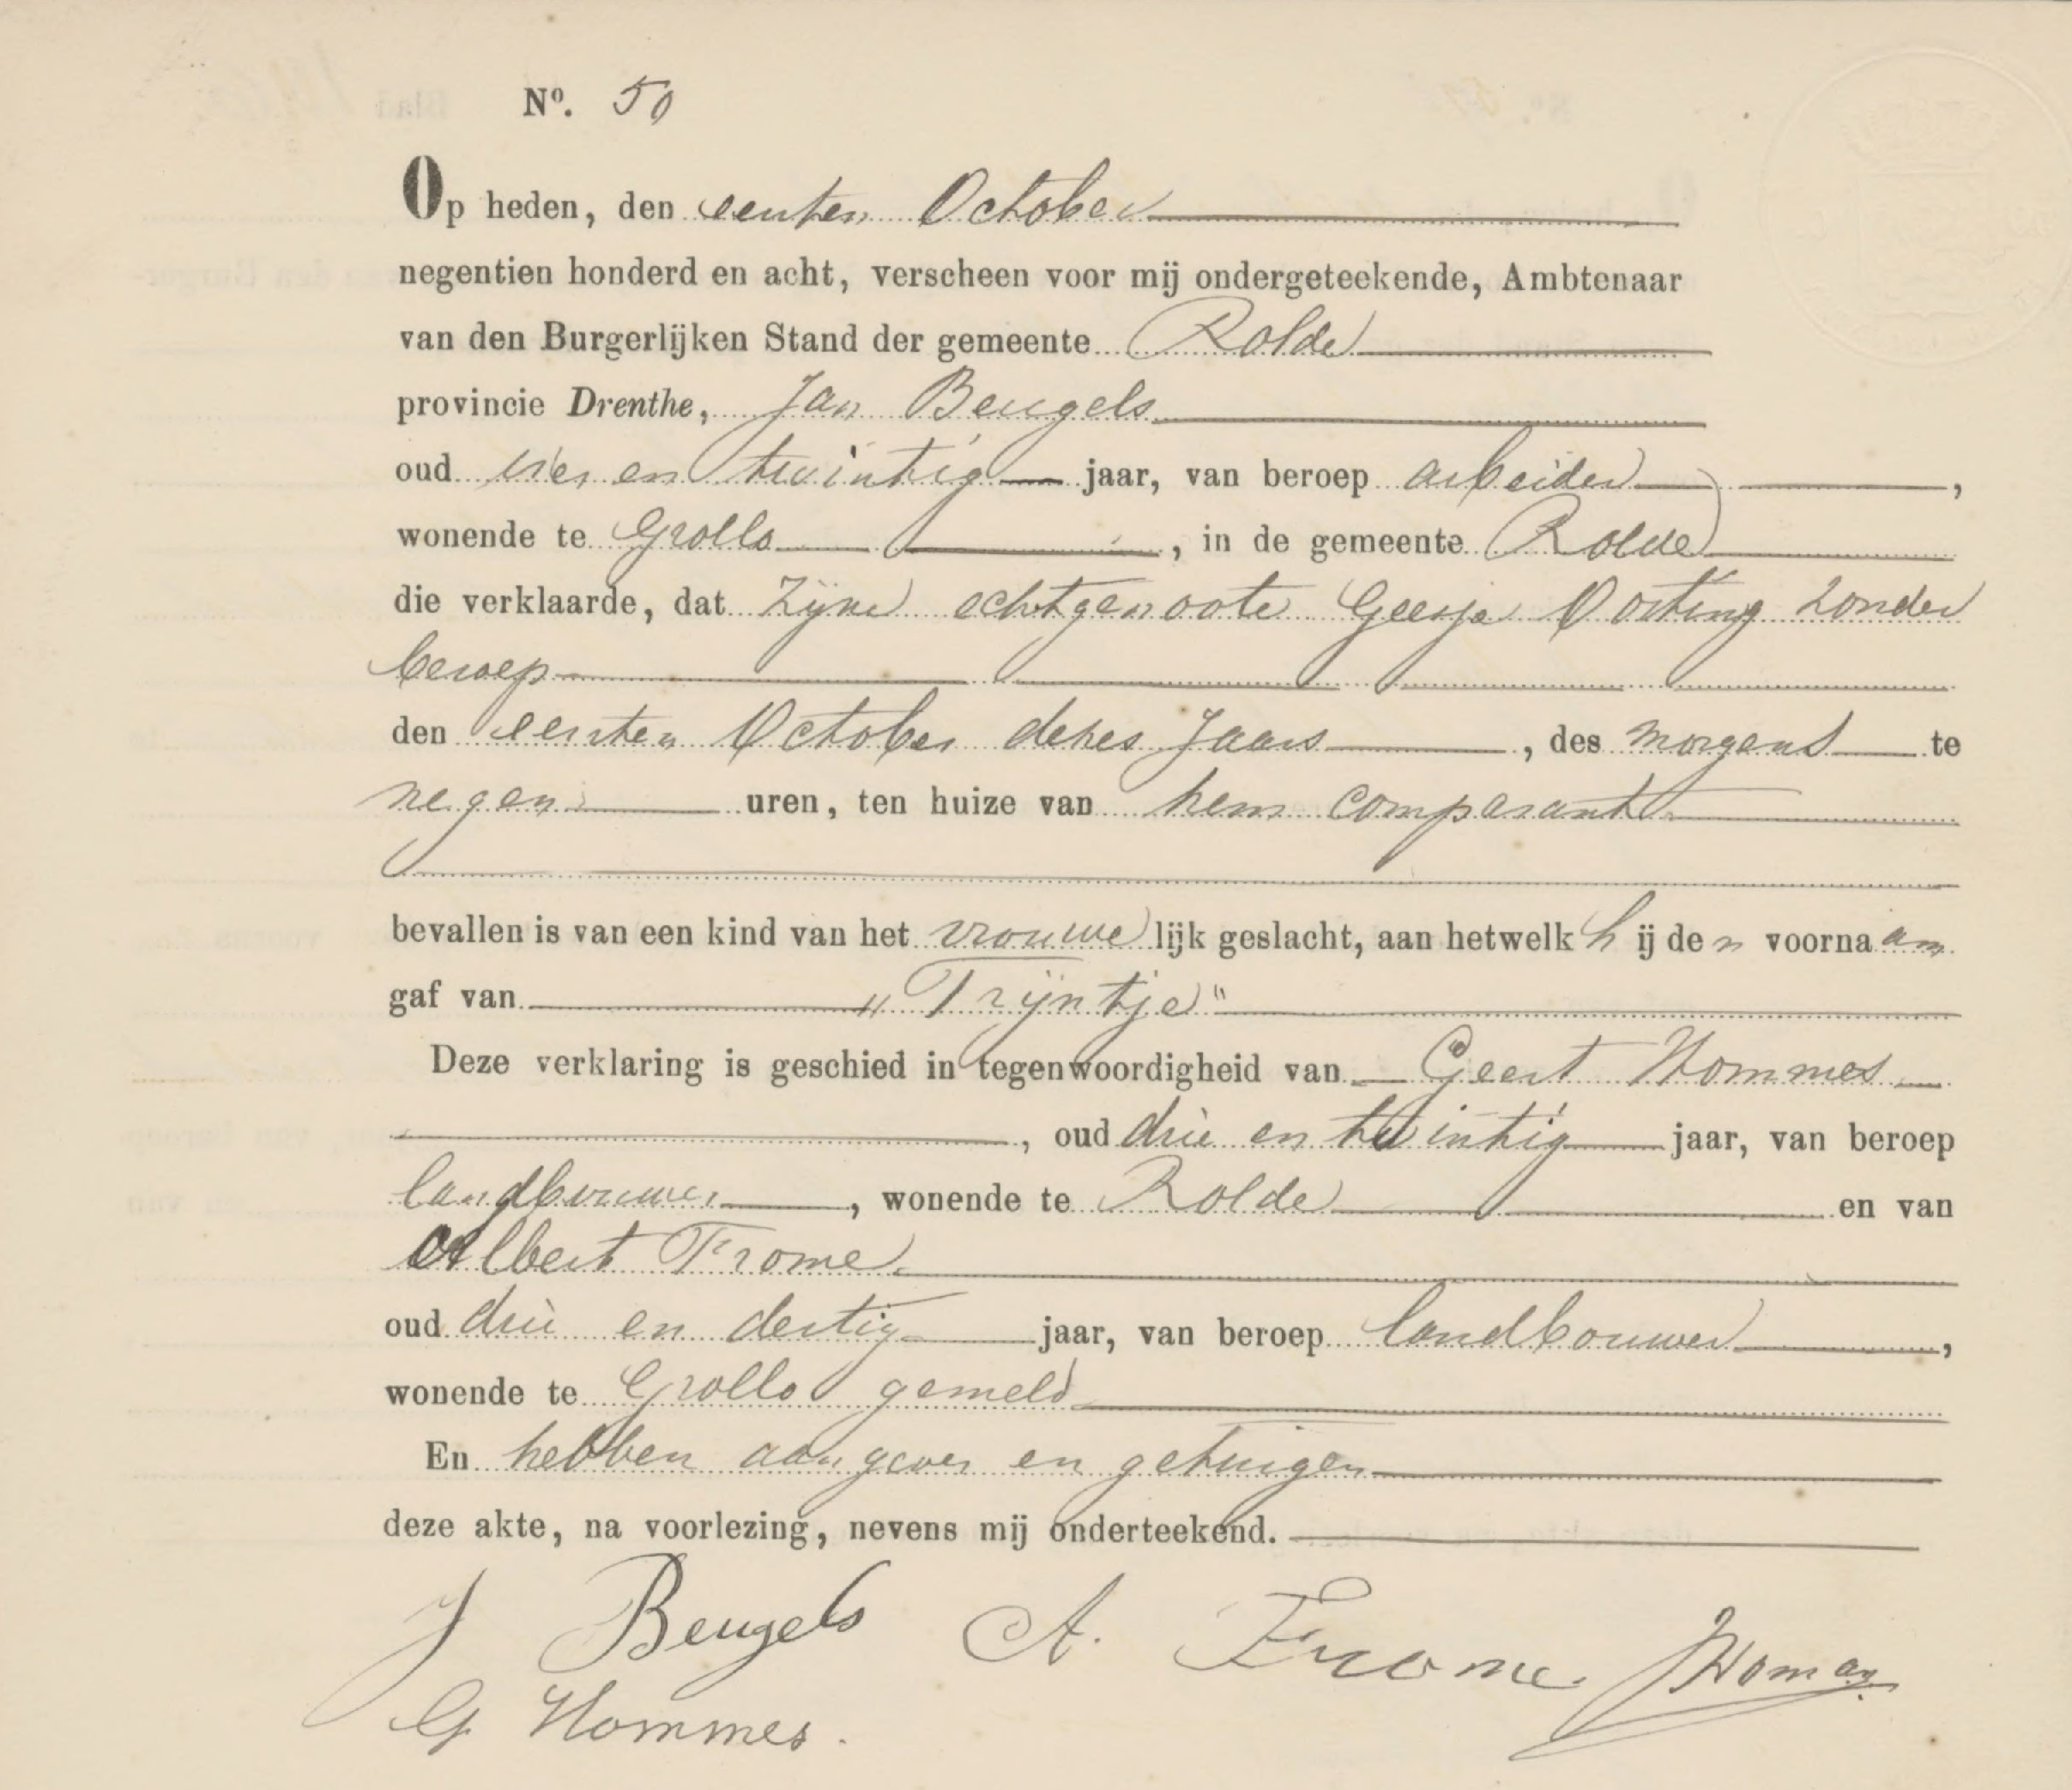 Nº. 50
Op heden, den eersten October
negentien honderd en acht, verscheen voor mij ondergeteekende, Ambtenaar
van den Burgerlijken Stand der gemeente Rolde
provincie Drenthe, Jan Beugels
oud vier en twintig jaar, van beroep arbeider,
wonende te Grollo, in de gemeente Rolde
die verklaarde, dat zijne echtgenoote Geesje Oosting zonder
beroep
den eersten October dezes Jaars, des morgens te
negen uren, ten huize van hem comparant
bevallen is van een kind van het vrouwelijk geslacht, aan hetwelk hij den voornaam
gaf van "Trijntje"
Deze verklaring is geschied in tegenwoordigheid van Geert Hommes
, oud drie en twintig jaar, van beroep
landbouwer, wonende te Rolde en van
Albert Frome
oud drie en dertig jaar, van beroep landbouwer,
wonende te Grollo gemeld
En hebben aangever en getuigen
deze akte, na voorlezing, nevens mij onderteekend.
J Beugels A. Frome. JHoman
G Hommes.